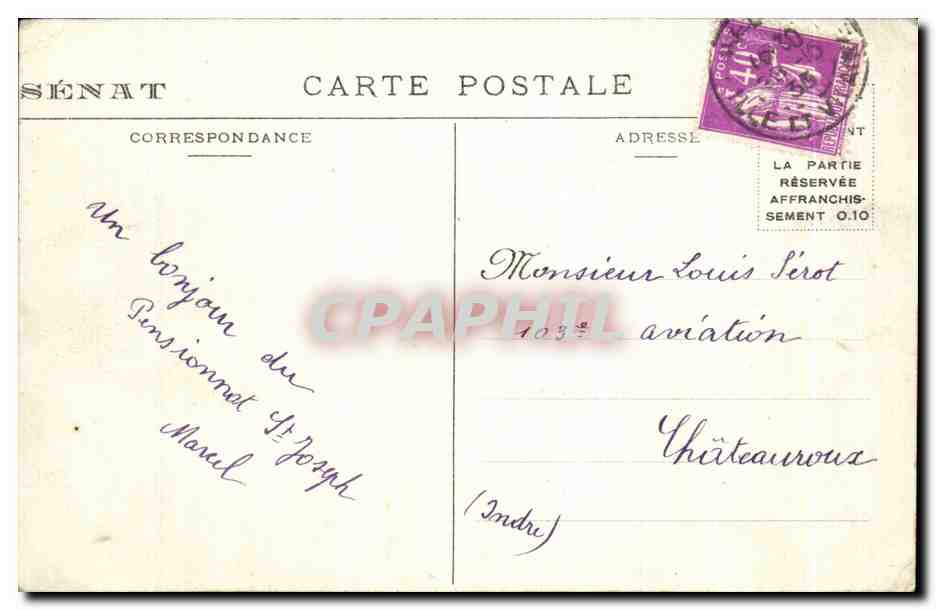 SÉNAT
CARTE POSTALE
CORRESPONDANCE
ADRESSE
POSTES
40c
LA PARTIE
RÉSERVÉE
AFFRANCHIS-
SEMENT 0.10
Un bonjour du
Pensionnat St Joseph
Marcel
Monsieur Louis Sérot
103e aviation
Châteauroux
(Indre)
CPAPHIL